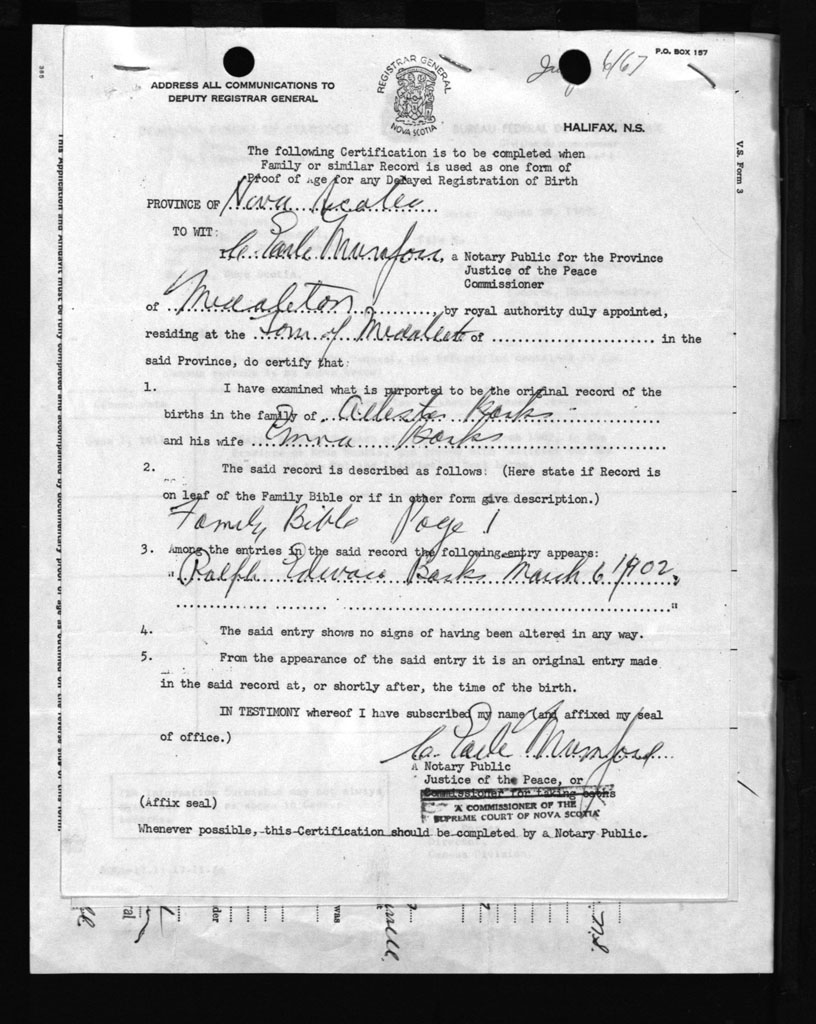 P.O. BOX 157
6/67
REGISTRAR GENERAL
NOVA SCOTIA
ADDRESS ALL COMMUNICATIONS TO
DEPUTY REGISTRAR GENERAL
HALIFAX, N.S.
V.S. Form 3
The following Certification is to be completed when
Family or similar Record is used as one form of
Proof of Age for any Delayed Registration of Birth
PROVINCE OF Nova Scotia
TO WIT:
I C. Earle Mumford, a Notary Public for the Province
Justice of the Peace
Commissioner
of Middleton, by royal authority duly appointed,
residing at the Town of Middleton of in the
said Province, do certify that:
1. I have examined what is purported to be the original record of the
births in the family of Banks
and his wife Emma Banks
2. The said record is described as follows: (Here state if Record is
on leaf of the Family Bible or if in other form give description.)
Family Bible Page 1
3. Among the entries in the said record the following entry appears:
"Ralph Edward Banks March 6, 1902.
"
4. The said entry shows no signs of having been altered in any way.
5. From the appearance of the said entry it is an original entry made
in the said record at, or shortly after, the time of the birth.
IN TESTIMONY whereof I have subscribed my name (and affixed my seal
of office.)
C. Earle Mumford
A Notary Public
Justice of the Peace, or
Commissioner for taking oaths
A COMMISSIONER OF THE
SUPREME COURT OF NOVA SCOTIA
(Affix seal)
Whenever possible, this Certification should be completed by a Notary Public.
der
was
N.S.